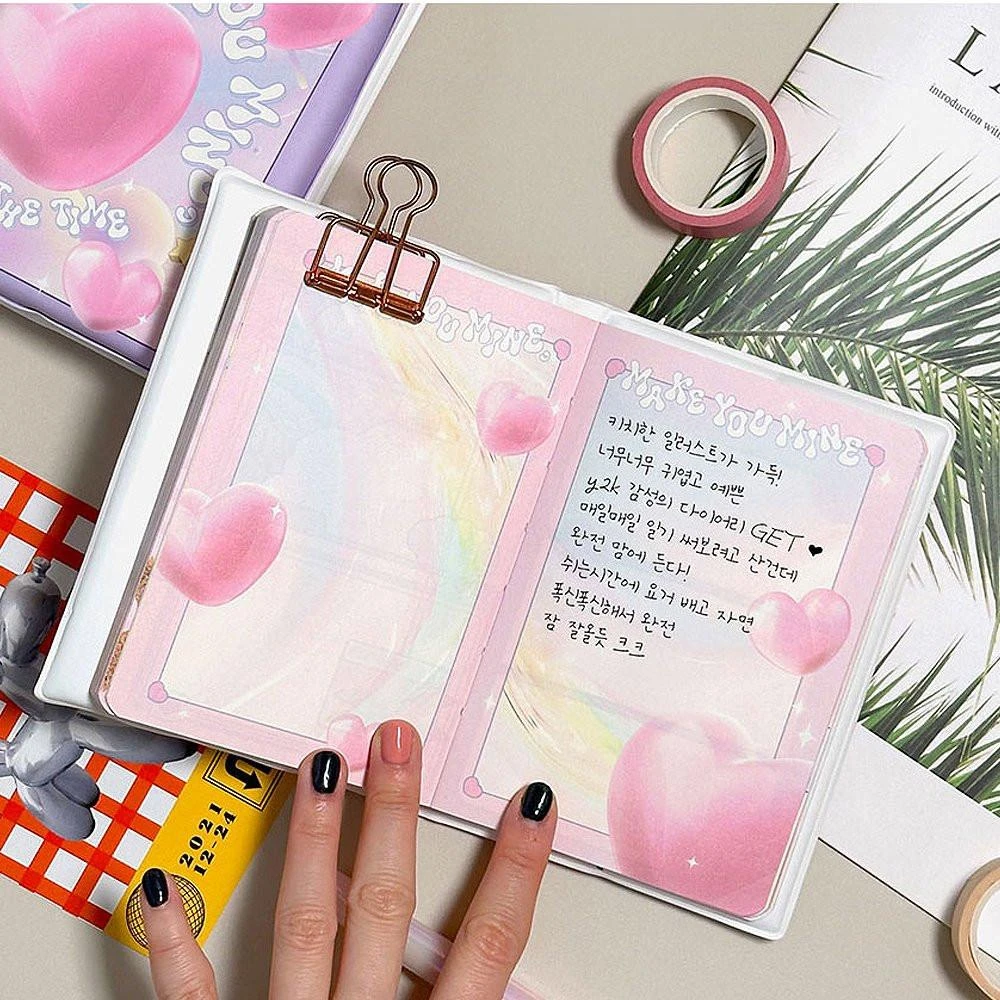 YOU MIN
THE TIME
LA
introduction with
YOU MINE.
MAKE YOU MINE
키치한 일러스트가 가득!
너무너무 귀엽고 예쁜
y2k 감성의 다이어리 GET ♥
매일매일 일기 써보려고 산건데
완전 맘에 든다!
쉬는시간에 요거 배고 자면
폭신폭신해서 완전
잠 잘올듯 크크
2021
12-24